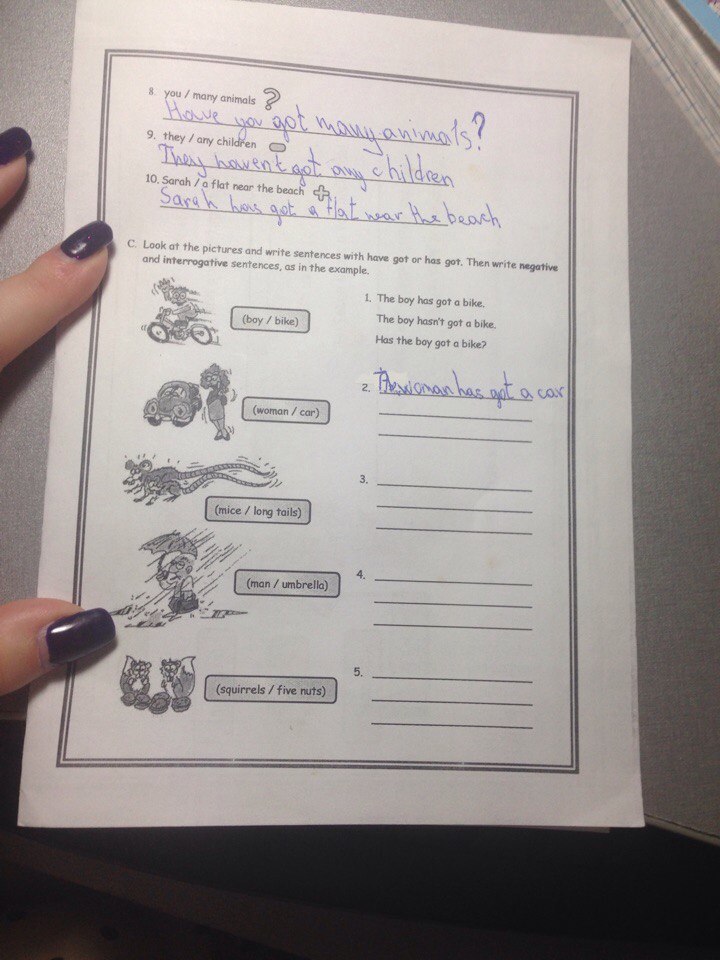 8. you / many animals ?
Have you got many animals?
9. they / any children -
They haven't got any children
10. Sarah / a flat near the beach +
Sarah has got a flat near the beach
C. Look at the pictures and write sentences with have got or has got. Then write negative
and interrogative sentences, as in the example.
(boy / bike)
1. The boy has got a bike.
The boy hasn't got a bike.
Has the boy got a bike?
(woman / car)
2. The woman has got a car
(mice / long tails)
3.
(man / umbrella)
4.
(squirrels / five nuts)
5.